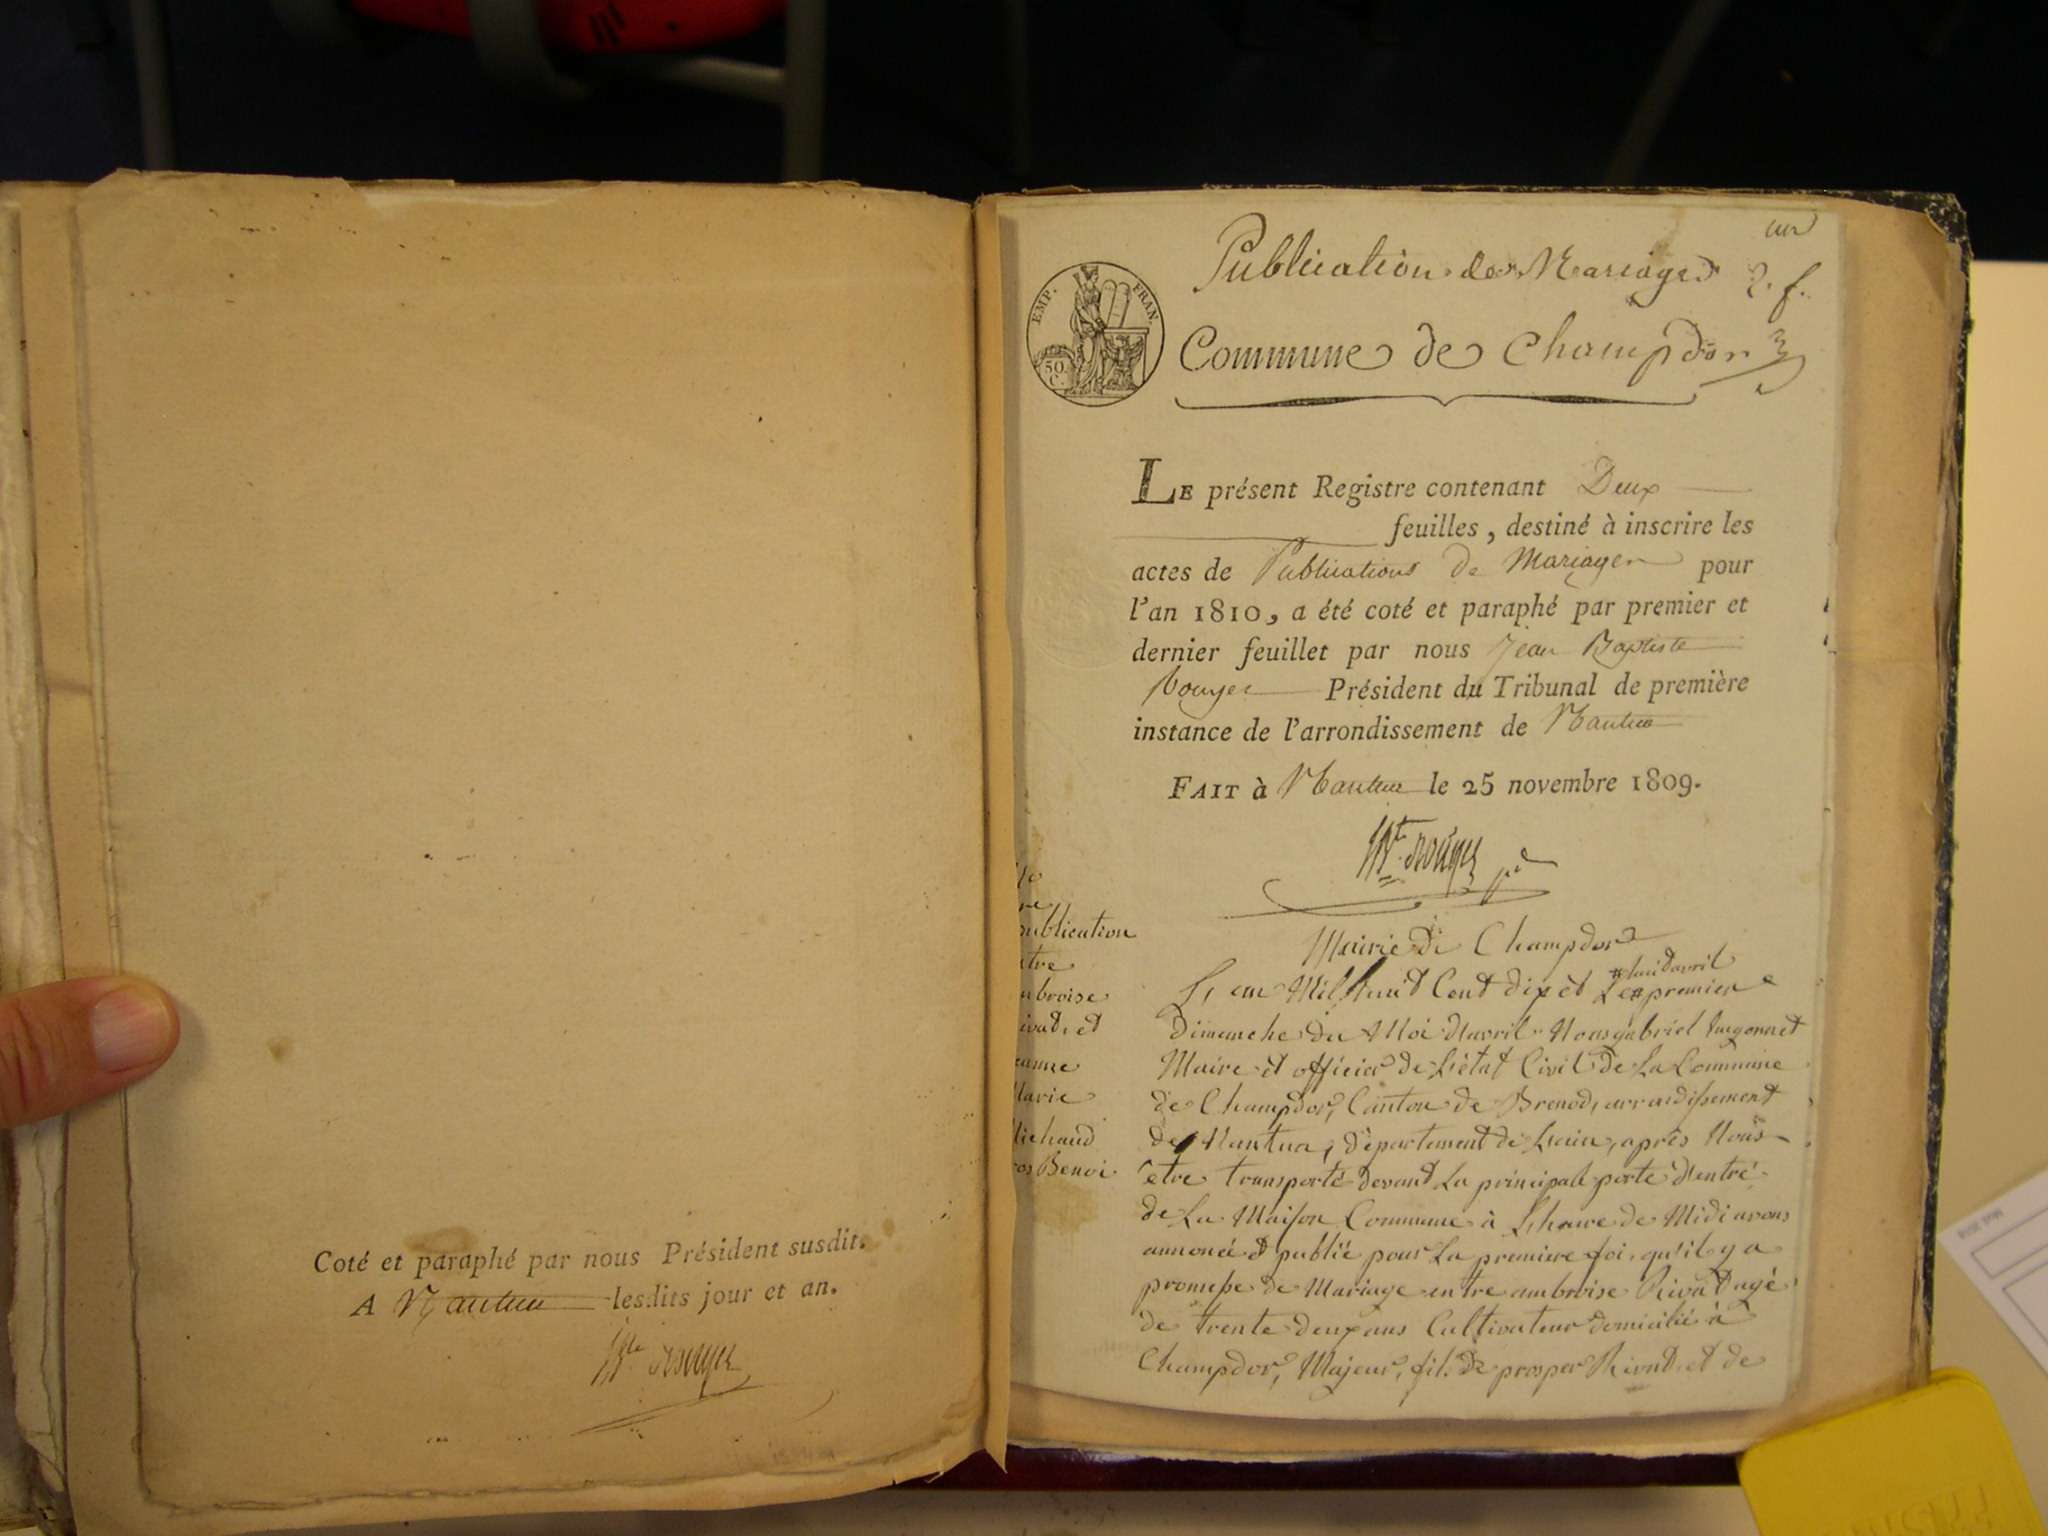 Coté et paraphé par nous Président susdit.
A Nantua lesdits jour et an.
Publication de Mariages 2. f.
EMP. FRAN.
50. C.
Commune de Champdor
LE présent Registre contenant Deux
feuilles, destiné à inscrire les
actes de Publications de Mariages pour
l'an 1810, a été coté et paraphé par premier et
dernier feuillet par nous Jean Baptiste
Rouyer Président du Tribunal de première
instance de l'arrondissement de Nantua
FAIT à Nantua le 25 novembre 1809.
Bte Rouyer pd
Mairie de Champdor
ublication
tre
mbroise
ivat, et
eanne
Marie
Michaud
ros Benoi
L'an Mil huit Cent dix et Le premier
huit avril
dimanche du Moi d'avril Nous gabriel
Maire et officier de L'état Civil de La Commune
de Champdor, Canton de Brenod, arrondissement
de Nantua, département de Lain, après Nous
être transporté devant La principale porte d'entré
de La Maison Commune à Lheure de Midi avons
annoncé et publié pour La premiere foi, qu'il y a
promesse de Mariage entre ambroise Rivat agé
de trente deux ans Cultivateur domicilié à
Champdor, Majeur, fils de prosper Rivat, et de